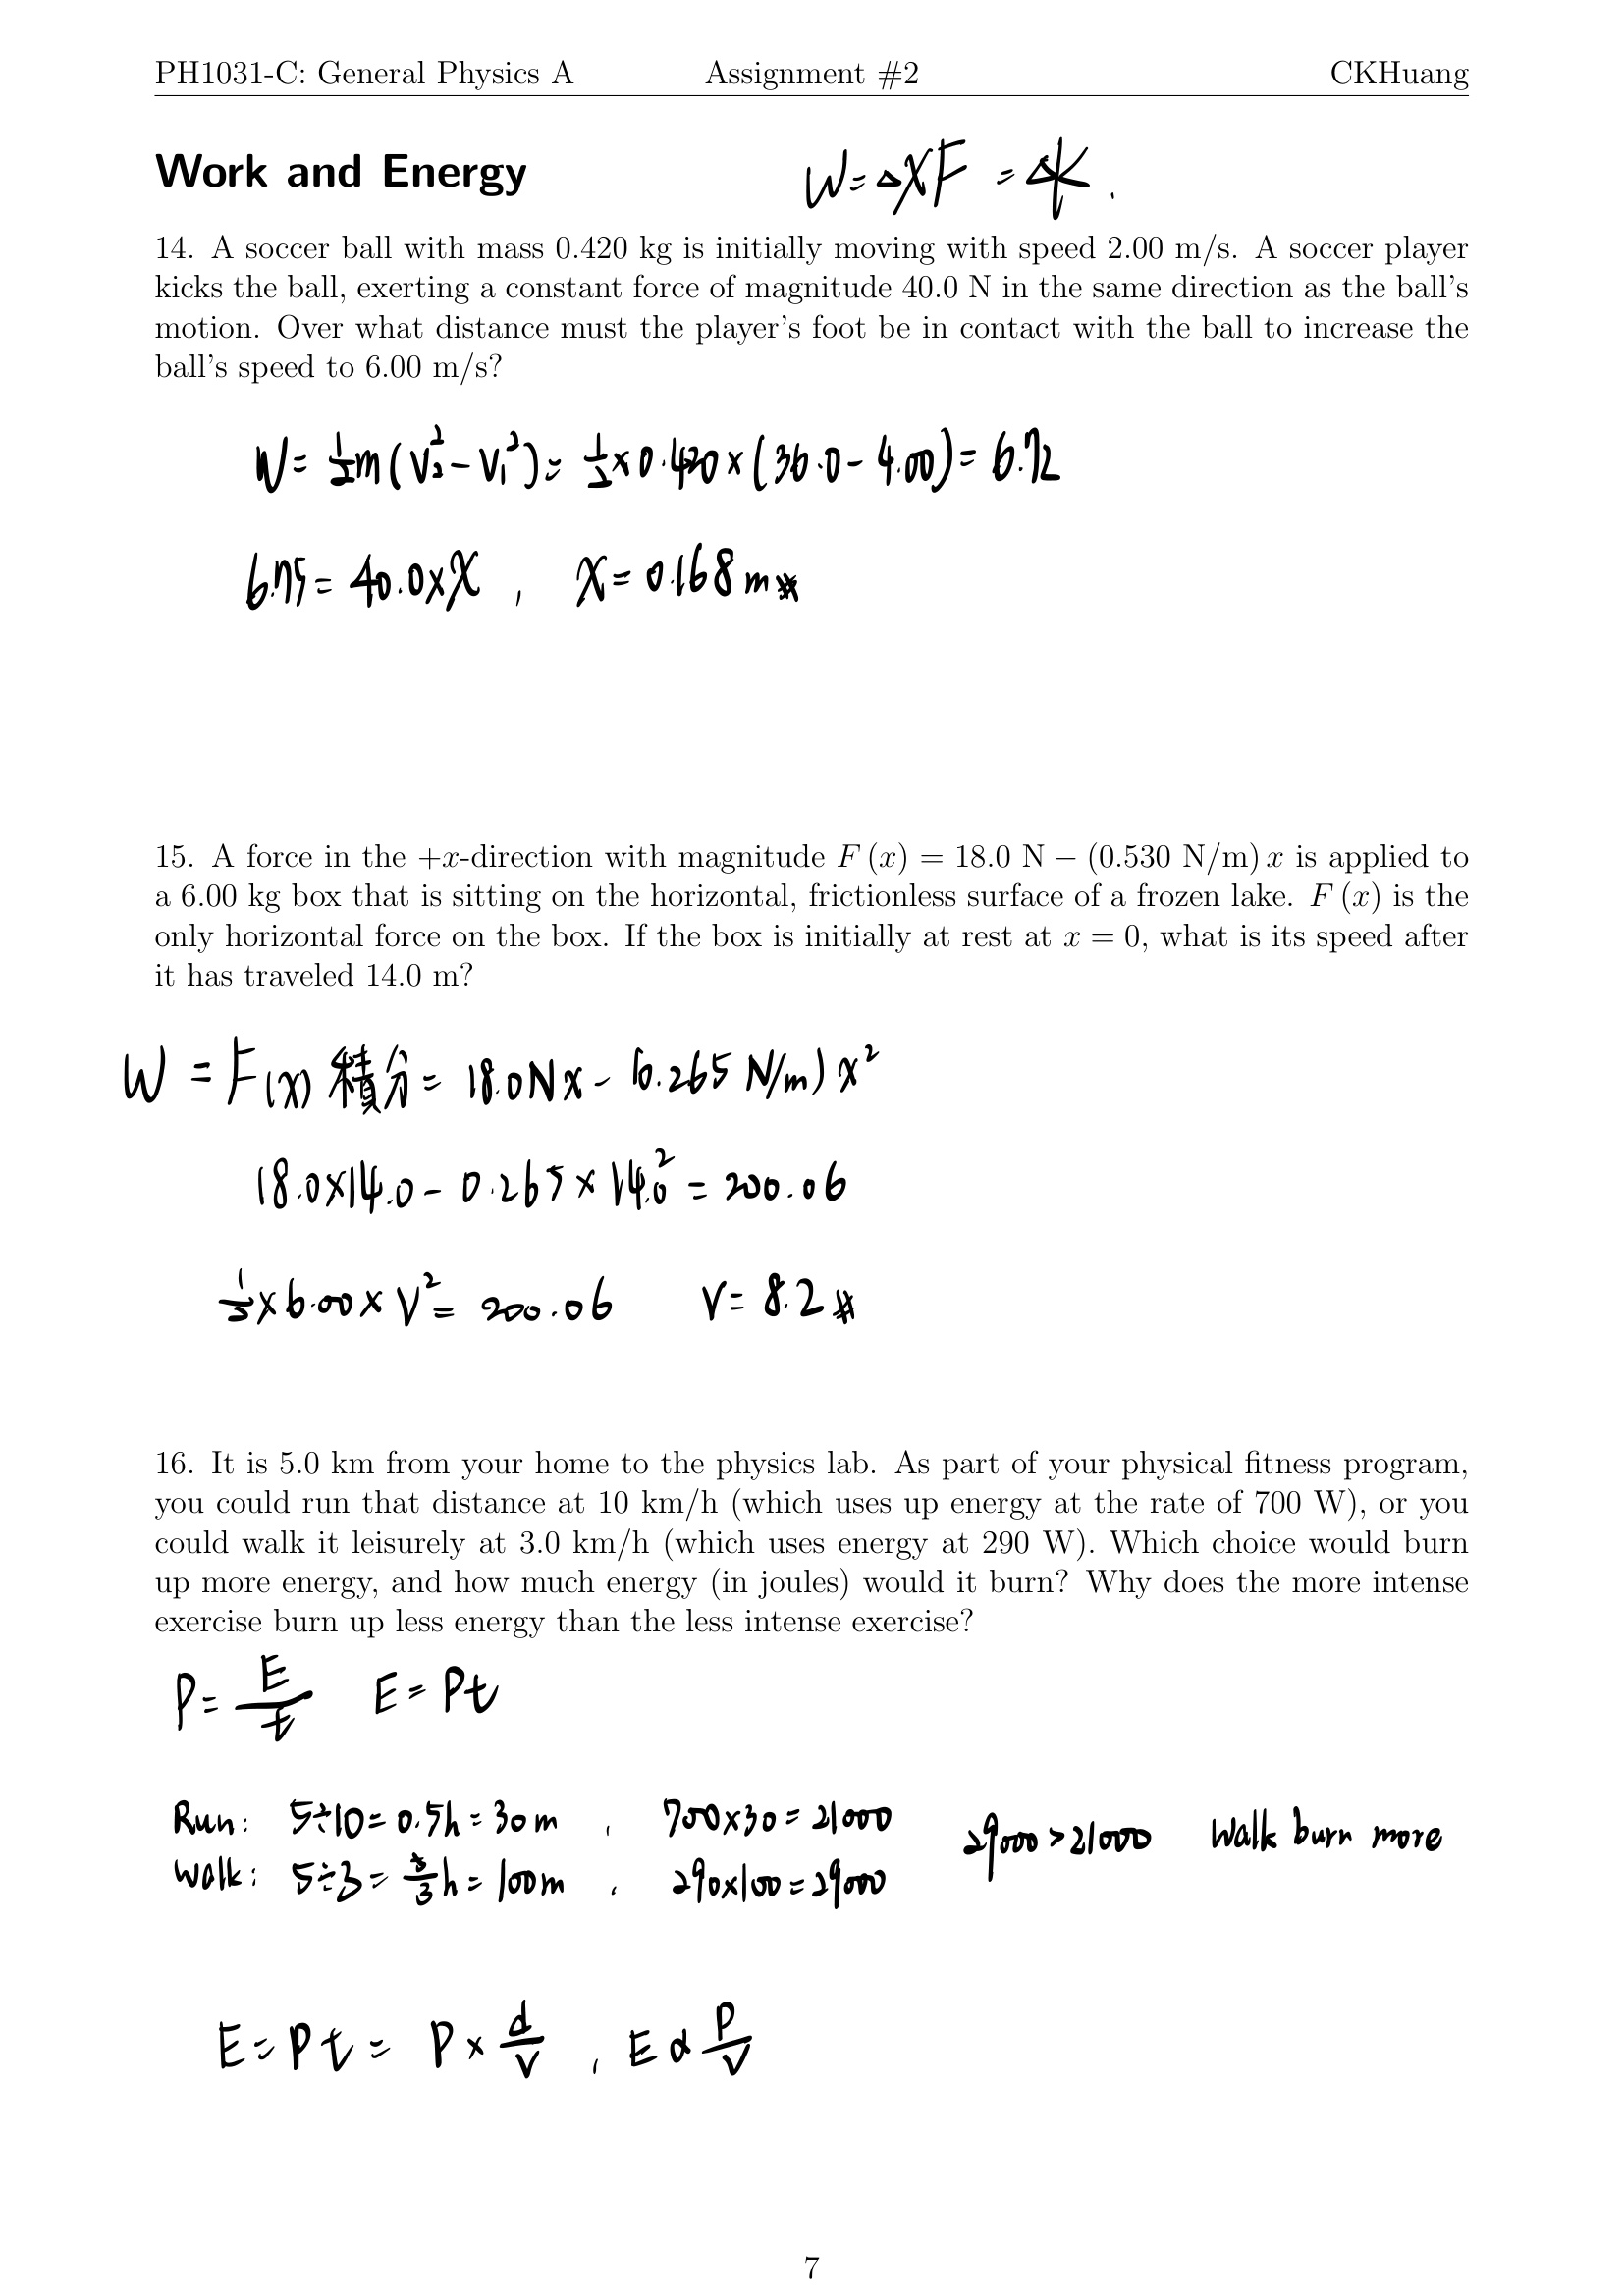 PH1031-C: General Physics A Assignment #2 CKHuang
Work and Energy
W=ΔXF=ΔK.
14. A soccer ball with mass 0.420 kg is initially moving with speed 2.00 m/s. A soccer player
kicks the ball, exerting a constant force of magnitude 40.0 N in the same direction as the ball's
motion. Over what distance must the player's foot be in contact with the ball to increase the
ball's speed to 6.00 m/s?
W= 1/2 m(V₂²-V₁²)= 1/2×0.420×(36.0-4.00)= 6.72
6.75= 40.0×X , X=0.168m#
15. A force in the +x-direction with magnitude F (x) = 18.0 N − (0.530 N/m) x is applied to
a 6.00 kg box that is sitting on the horizontal, frictionless surface of a frozen lake. F (x) is the
only horizontal force on the box. If the box is initially at rest at x = 0, what is its speed after
it has traveled 14.0 m?
W = F(x) 積分= 18.0Nx - (0.265 N/m) x²
18.0×14.0 - 0.265 × 14.0² = 200.06
1/2×6.00×V²= 200.06 V= 8.2#
16. It is 5.0 km from your home to the physics lab. As part of your physical fitness program,
you could run that distance at 10 km/h (which uses up energy at the rate of 700 W), or you
could walk it leisurely at 3.0 km/h (which uses energy at 290 W). Which choice would burn
up more energy, and how much energy (in joules) would it burn? Why does the more intense
exercise burn up less energy than the less intense exercise?
P= E/t E= Pt
Run: 5÷10= 0.5h= 30m , 700×30= 21000
29000>21000 Walk burn more
Walk: 5÷3= 5/3 h= 100m , 290×100=29000
E=Pt= P× d/v , E∝ P/V
7